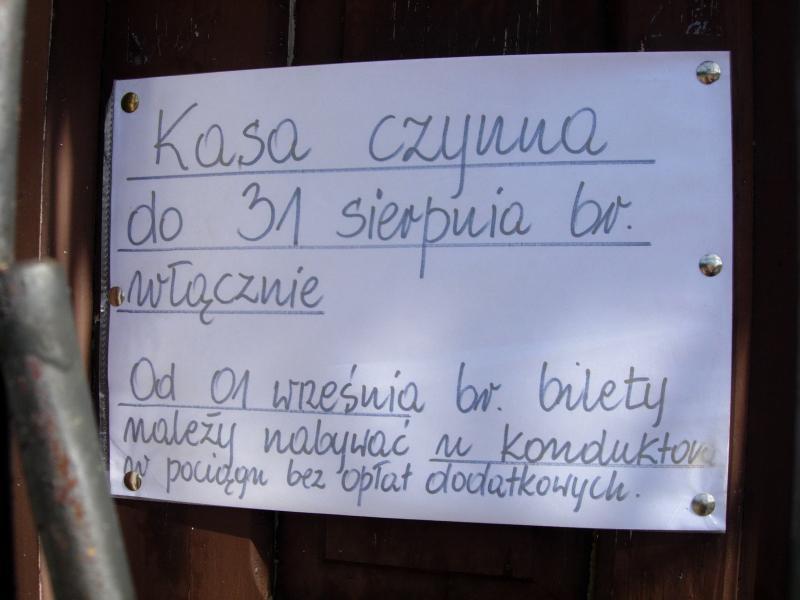 Kasa czynna
do 31 sierpnia br.
włącznie
Od 01 września br. bilety
należy nabywać u konduktora
w pociągu bez opłat dodatkowych.